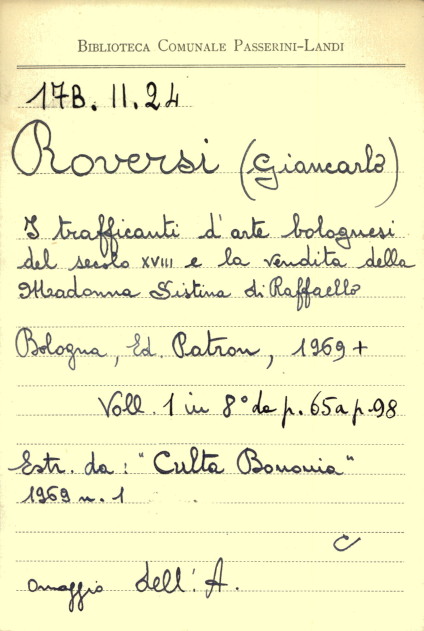 BIBLIOTECA COMUNALE PASSERINI-LANDI
17B. II. 24
Roversi (Giancarlo)
I trafficanti d'arte bolognesi
del secolo XVIII e la vendita della
Madonna Sistina di Raffaello
Bologna, Ed. Patron, 1969 +
Voll. 1 in 8° da p. 65 a p. 98
Estr. da: "Culta Bononia"
1969 n. 1
C
omaggio dell'A.